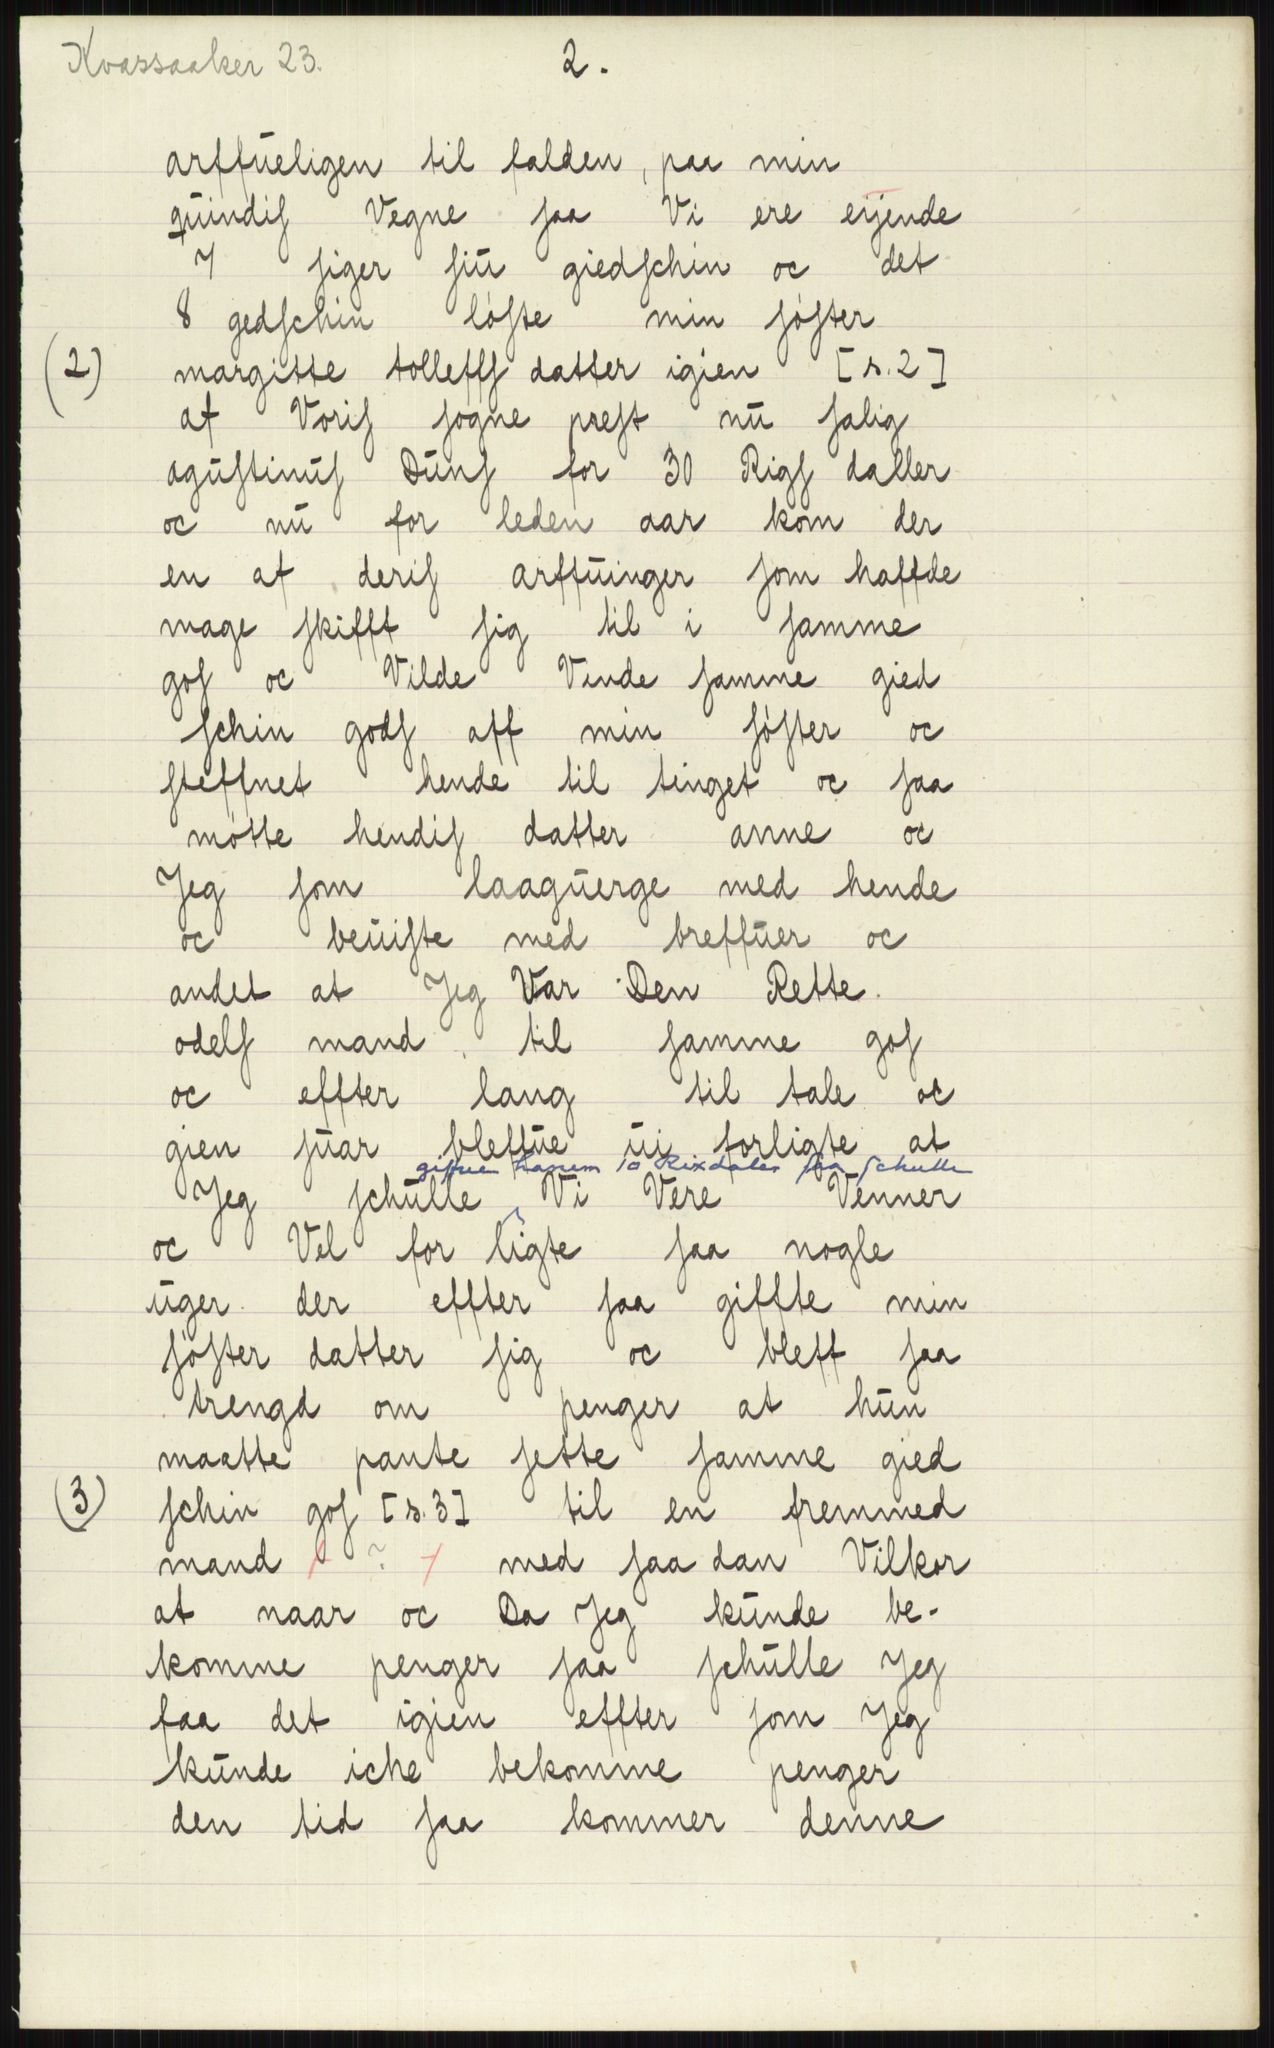 Kvassaaker 23.
2.
arffueligen til falden, paa min
quindiſ Vegne ſaa Vi ere eyende
7 ſiger ſiu giedſchin oc det
8 gedſchin løſte min ſøſter
(2) margitte tolleffſ datter igien [s.2]
af Voriſ ſogne preſt nu ſalig
aguſtinuſ Dunſ for 30 Rigſ daller
oc nu for leden aar kom der
en af deriſ arffuinger ſom haffde
mage ſkifft ſig til i ſamme
goſ oc Vilde Vinde ſamme gied
ſchin godſ aff min ſøſter oc
ſteffnet hende til tinget oc ſaa
møtte hendiſ datter anne oc
Jeg ſom laaguerge med hende
oc beuiſte med breffuer oc
andet at Jeg Var Den Rette
odelſ mand til ſamme goſ
oc effter lang til tale oc
gien ſuar bleffue ui forligte at
giffue hanem 10 Rixdaler ſaa ſchulle
Jeg ſchulle Vi Vere Venner
oc Vel for ligte ſaa nogle
uger der effter ſaa giffte min
ſøſter datter ſig oc bleff ſaa
trengd om penger at hun
maatte pante ſette ſamme gied
(3) ſchin goſ [s.3] til en fremmed
mand ? med ſaa dan Vilkor
at naar oc Da Jeg kunde be-
komme penger ſaa ſchulle Jeg
faa det igien effter ſom Jeg
kunde iche bekomme penger
den tid ſaa kommer denne